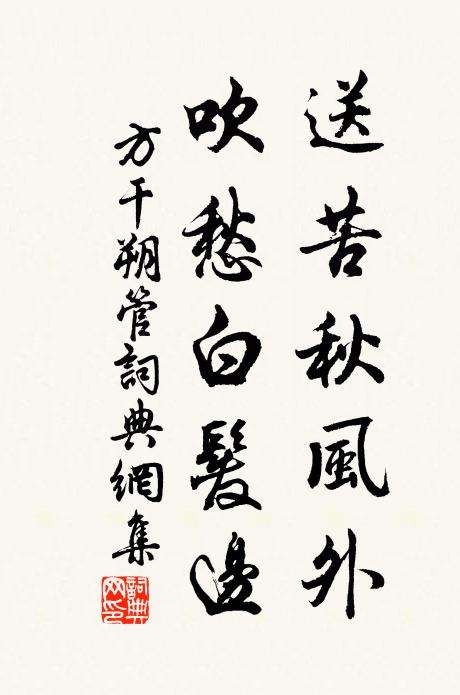 送苦秋風外
吹愁白髮邊
方干朔管詞典網集
詞典網印